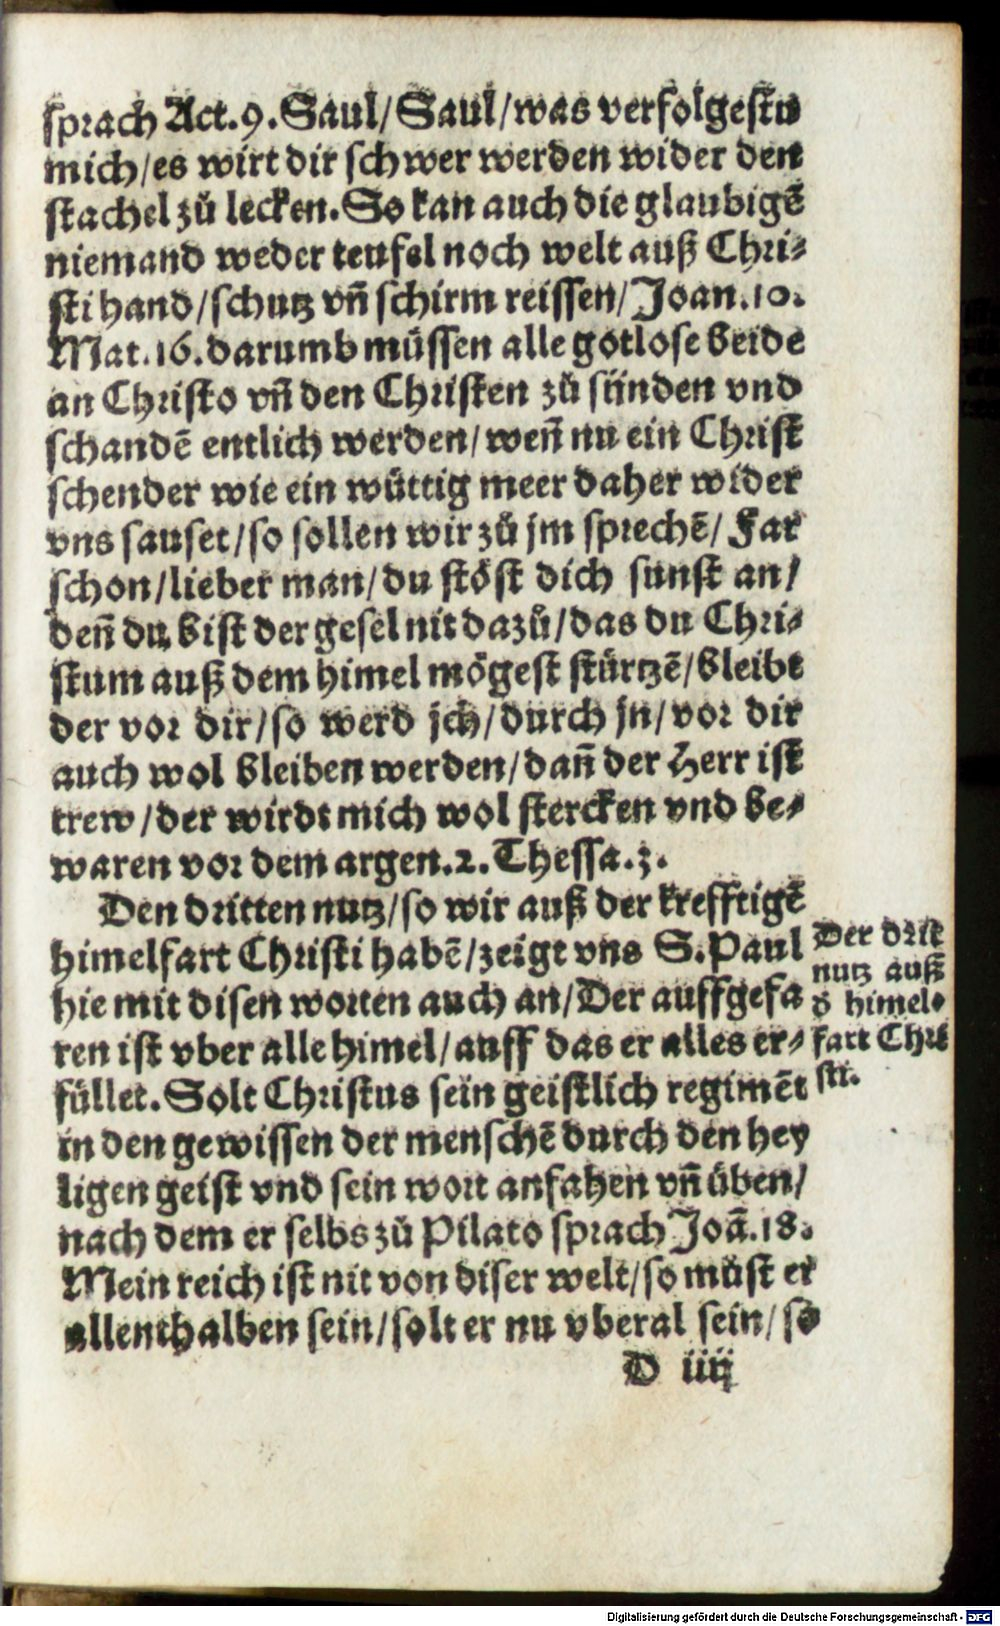 sprach Act.9. Saul/ Saul/ was verfolgestu
mich/ es wirt dir schwer werden wider den
stachel zů lecken. So kan auch die glaubigẽ
niemand weder teufel noch welt auß Chri⸗
sti hand/ schutz vñ schirm reissen/ Joan.10.
Mat.16. darumb müssen alle gotlose beide
an Christo vñ den Christen zů sünden vnd
schandẽ entlich werden/ weñ nu ein Christ
schender wie ein wüttig meer daher wider
vns sauset/ so sollen wir zů jm sprechẽ/ Far
schon/ lieber man/ du stöst dich sunst an/
deñ du bist der gesel nit dazů/ das du Chri⸗
stum auß dem himel mögest stürtzẽ/ bleibt
der vor dir/ so werd jch/ durch jn/ vor dir
auch wol bleiben werden/ dañ der Herr ist
trew/ der wirdt mich wol stercken vnd be⸗
waren vor dem argen. 2. Thessa.3.
Den dritten nutz/ so wir auß der krefftigẽ
himelfart Christi habẽ/ zeigt vns S. Paul
hie mit disen worten auch an/ Der auffgefa
ren ist vber alle himel/ auff das er alles er⸗
füllet. Solt Christus sein geistlich regimẽt
in den gewissen der menschẽ durch den hey
ligen geist vnd sein wort anfahen vñ üben/
nach dem er selbs zů Pilato sprach Joã.18.
Mein reich ist nit von diser welt/ so můst er
allenthalben sein/ solt er nu vberal sein/ so
D iiij
Der drit
nutz auß
d̕ himel⸗
fart Chri
sti.
Digitalisierung gefördert durch die Deutsche Forschungsgemeinschaft - DFG